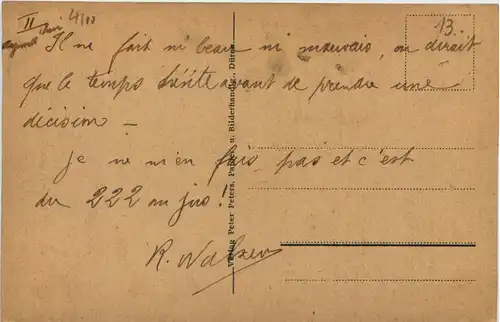 II 4/10
13.
Il ne fait ni beau ni mauvais, on dirait
que le temps hésite avant de prendre une
décision –
Je ne m'en fais pas et c'est
du 222 au jus !
R.
Verlag Peter Peters, Papier u. Bilderhandlg., Düren